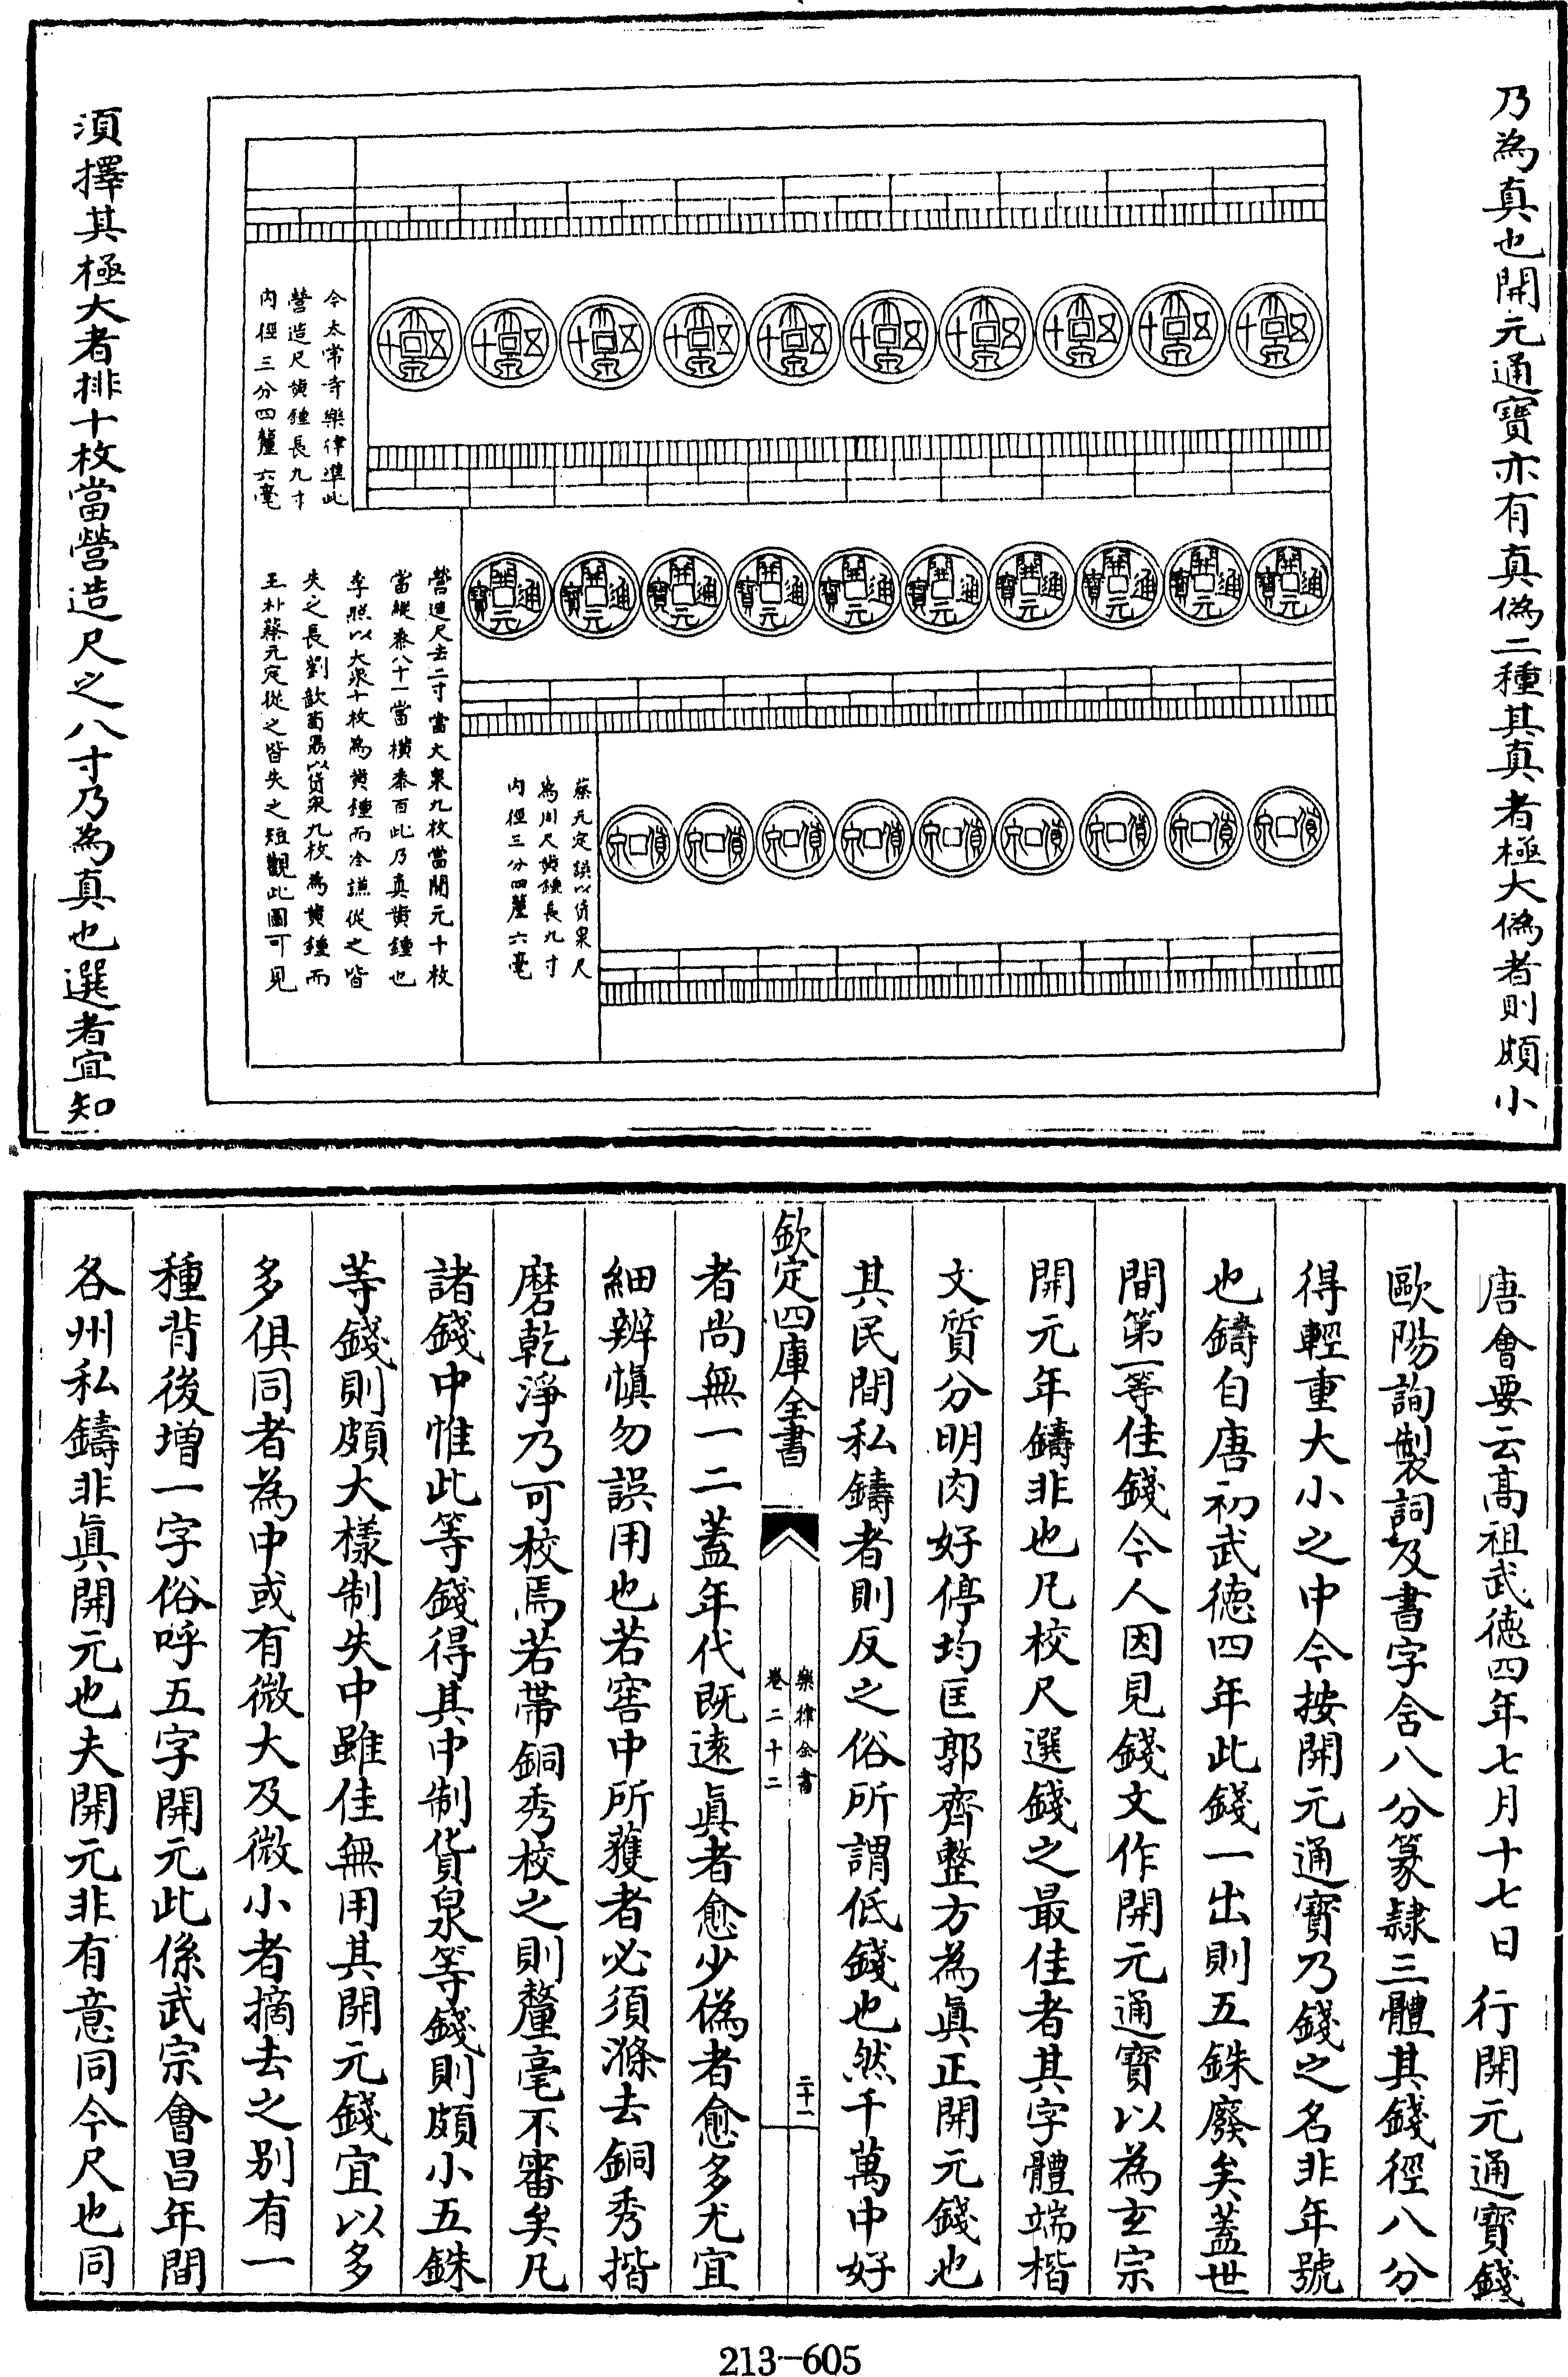 乃為真也開元通寶亦有真偽二種其真者極大偽者則頗小
今太常寺樂律準此
營造尺黄鍾長九寸
内徑三分四釐六毫
營造尺去二寸當大泉九枚當開元十枚
當縱黍八十一當横黍百此乃真黄鍾也
李照以大泉十枚為黄鍾而冷謙從之皆
失之長劉歆荀勗以貨泉九枚為黄鍾而
王朴蔡元定從之皆失之短觀此圖可見
蔡元定誤以貨泉尺
為周尺黄鍾長九寸
内徑三分四釐六毫
須擇其極大者排十枚當營造尺之八寸乃為真也選者宜知
唐會要云髙祖武徳四年七月十七日行開元通寶錢
歐陽詢製詞及書字含八分篆隷三體其錢徑八分
得輕重大小之中今按開元通寳乃錢之名非年號
也鑄自唐初武徳四年此錢一出則五銖廢矣蓋世
間第一等佳錢今人因見錢文作開元通寳以為玄宗
開元年鑄非也凡校尺選錢之最佳者其字體端楷
文質分明肉好停均匡郭齊整方為眞正開元錢也
其民間私鑄者則反之俗所謂低錢也然千萬中好
欽定四庫全書
樂律全書
卷二十二
二十一
者尚無一二蓋年代既逺眞者愈少偽者愈多尤宜
細辨愼勿誤用也若窖中所獲者必須滌去銅秀揩
磨乾淨乃可校焉若帶銅秀校之則釐毫不審矣凡
諸錢中惟此等錢得其中制貨泉等錢則頗小五銖
等錢則頗大樣制失中雖佳無用其開元錢宜以多
多俱同者為中或有微大及微小者摘去之别有一
種背後増一字俗呼五字開元此係武宗會昌年間
各州私鑄非眞開元也夫開元非有意同今尺也同
213-605